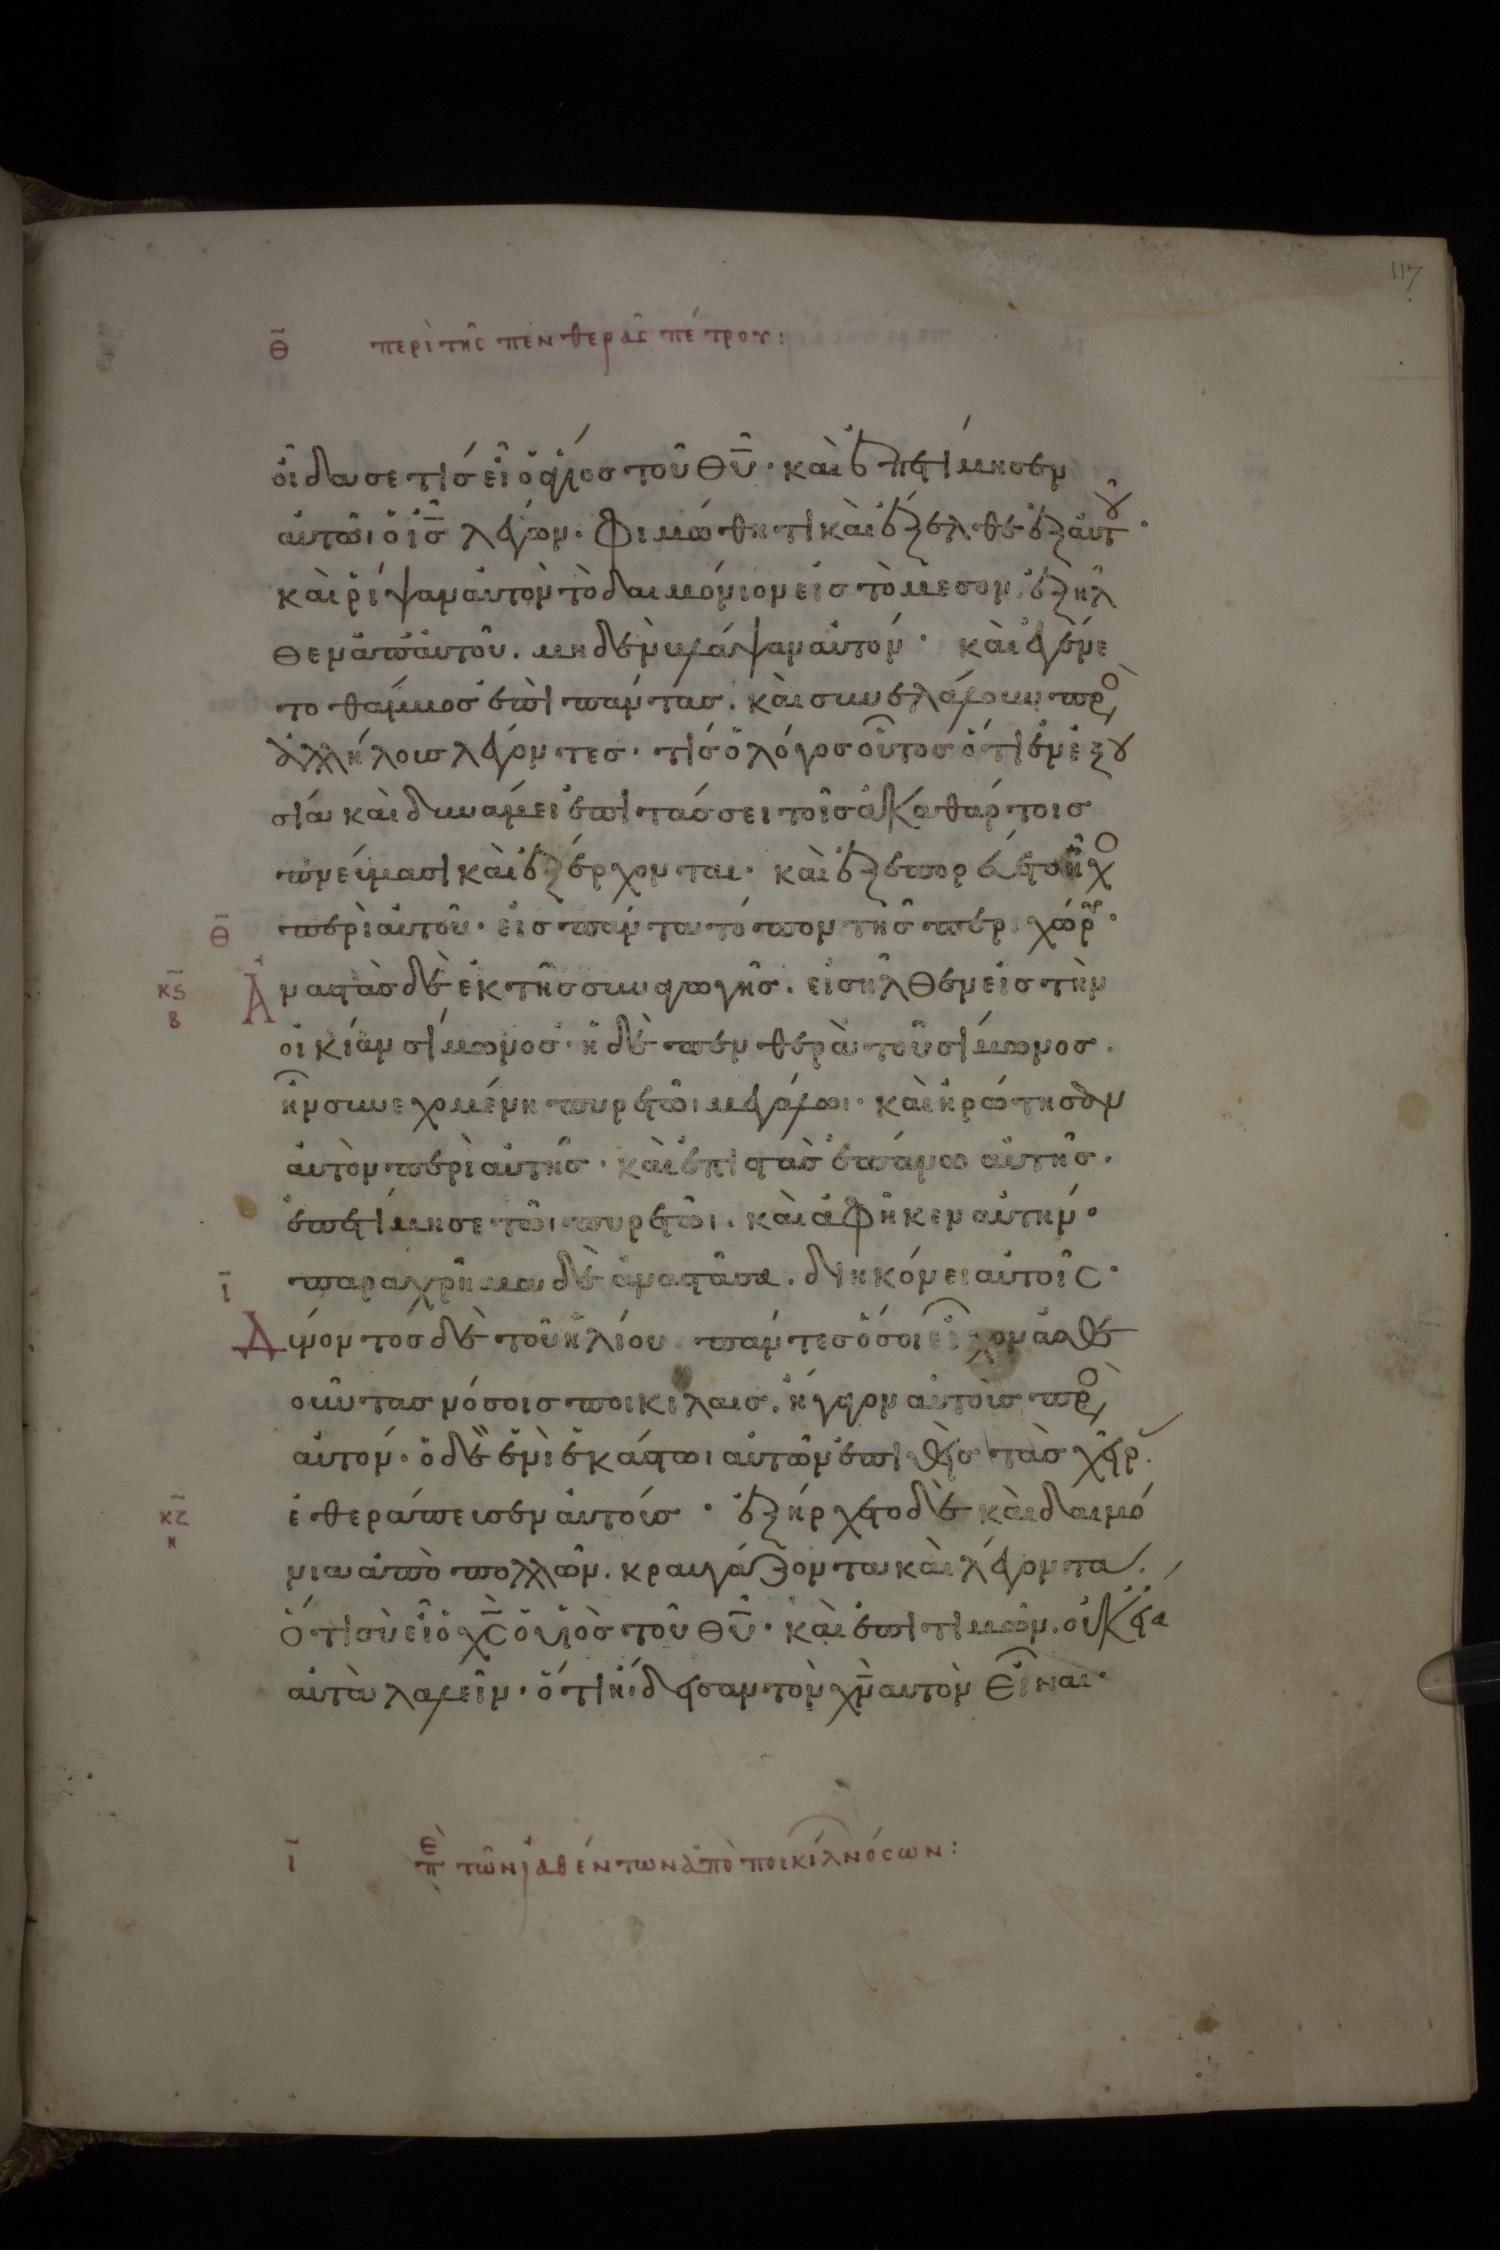 117
θ̄ περὶ τῆς πενθερᾶς πέτρου:
οἶδα σε τίς εἶ ὁ ἅγιος τοῦ θῡ· καὶ ἐπετίμησεν
αὐτῶι ὁ ις̄ λέγων· φιμώθητι καὶ ἔξελθε ἐξ αὐτοῦ·
καὶ ῥίψαν αὐτὸν τὸ δαιμόνιον εἰς τὸ μέσον, ἐξῆλ
θεν ἀπ' αὐτοῦ. μηδὲν βλάψαν αὐτόν· καὶ ἐγένε
το θάμβος ἐπὶ πάντας. καὶ συνελάλουν πρὸς
ἀλλήλους λέγοντες· τίς ὁ λόγος οὗτος ὅτι ἐν ἐξου
σία καὶ δυνάμει ἐπιτάσσει τοῖς ἀκαθάρτοις
πνεύμασι καὶ ἐξέρχονται· καὶ ἐξεπορεύετο ἦχο
περὶ αὐτοῦ· εἰς πάντα τόπον τῆς περιχώρου·
θ̄
κϛ̄ β Ἀναστὰς δὲ ἐκ τῆς συναγωγῆς. εἰσῆλθεν εἰς τὴν
οἰκίαν σίμωνος· ἡ δὲ πενθερὰ τοῦ σίμωνος.
ἦν συνεχομένη πυρετῶι μεγάλωι· καὶ ἠρώτησαν
αὐτὸν περὶ αὐτῆς· καὶ ἐπιστὰς ἐπάνω αὐτῆς.
ἐπετίμησε τῶι πυρετῶι. καὶ ἀφῆκεν αὐτήν·
παραχρῆμα δὲ ἀναστᾶσα. διηκόνει αὐτοῖς·
ῑ
Δύνοντος δὲ τοῦ ἡλίου πάντες ὅσοι εἶχον ἀσθε
νοῦντας νόσοις ποικίλαις. ἤγαγον αὐτοὺς πρὸς
αὐτόν· ὁ δὲ ἑνὶ ἑκάστωι αὐτῶν ἐπιθεὶς τὰς χεῖρ.
κζ̄ η ἐθεράπευσεν αὐτούς· ἐξήρχετο δὲ καὶ δαιμό
νια ἀπὸ πολλῶν. κραυγάζοντα καὶ λέγοντα.
ὅτι σὺ εἶ ὁ χς̄ ὁ υἱὸς τοῦ θῡ· καὶ ἐπιτιμῶν. οὐκ εἴα
αὐτὰ λαλεῖν· ὅτι ἤιδεισαν τὸν χν̄ αὐτὸν εἶναι·
ῑ πε τῶν ἰαθέντων ἀπὸ ποικίλ νόσων: